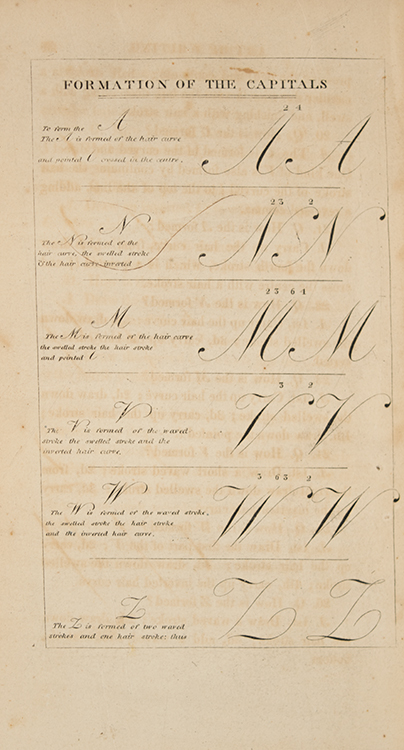 FORMATION OF THE CAPITALS
2 4
To form the A
The A is formed of the hair curve
and pointed C crossed in the centre.
A A
2 3 2
N
The N is formed of the
hair curve, the swelled stroke
& the hair curve inverted
N N
2 3 6 4
M
The M is formed of the hair curve
the swelled stroke the hair stroke
and pointed C
M M
3 2
V
The V is formed of the waved
stroke the swelled stroke and the
inverted hair curve.
V V
3 6 3 2
W
The W is formed of the waved stroke,
the swelled stroke the hair stroke
and the inverted hair curve.
W W
Z
The Z is formed of two waved
strokes and one hair stroke; thus
Z Z